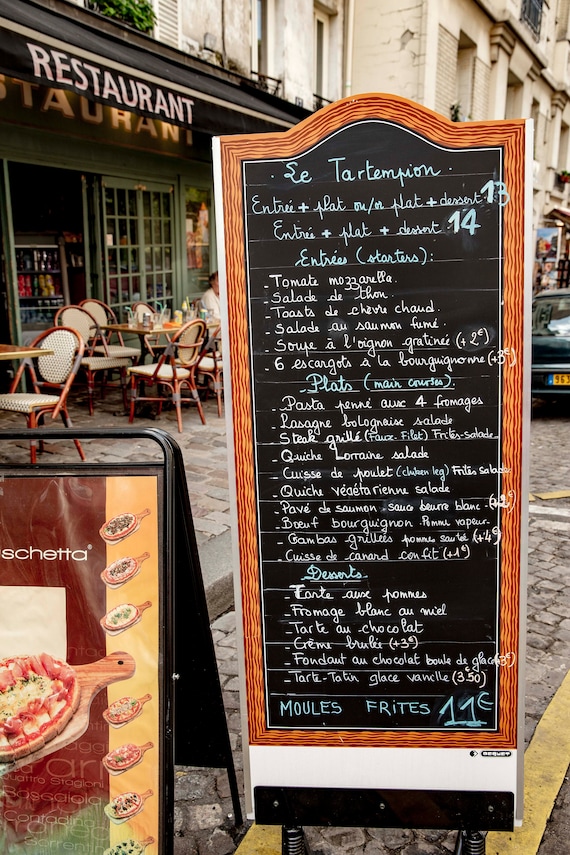 RESTAURANT
STAURANT
Le Tartempion
Entrée + plat ou/or plat + dessert 13
Entrée + plat + dessert 14
Entrées (starters):
- Tomate mozzarella.
- Salade de thon.
- Toasts de chèvre chaud.
- Salade au saumon fumé.
- Soupe à l'oignon gratinée (+2€)
- 6 escargots à la bourguignonne (+3€)
Plats (main courses).
- Pasta penné aux 4 fromages
- Lasagne bolognaise salade
- Steak grillé (Faux-Filet) Frites-Salade
- Quiche Lorraine salade
- Cuisse de poulet (chicken leg) Frites Salade
- Quiche végétarienne salade
- Pavé de saumon sauce beurre blanc (+2€)
- Bœuf bourguignon Pomme vapeur
- Gambas grillées pomme sauté (+4€)
- Cuisse de canard confit (+1€)
Desserts
- Tarte aux pommes
- Fromage blanc au miel
- Tarte au chocolat
- Crême brulée (+3€)
- Fondant au chocolat boule de glace (3€)
- Tarte-Tatin glace vanille (3.50)
MOULES FRITES 11€
BEQUET
schetta®
Quattro Stagioni
Boscaiola
Contadina
Sorrentina